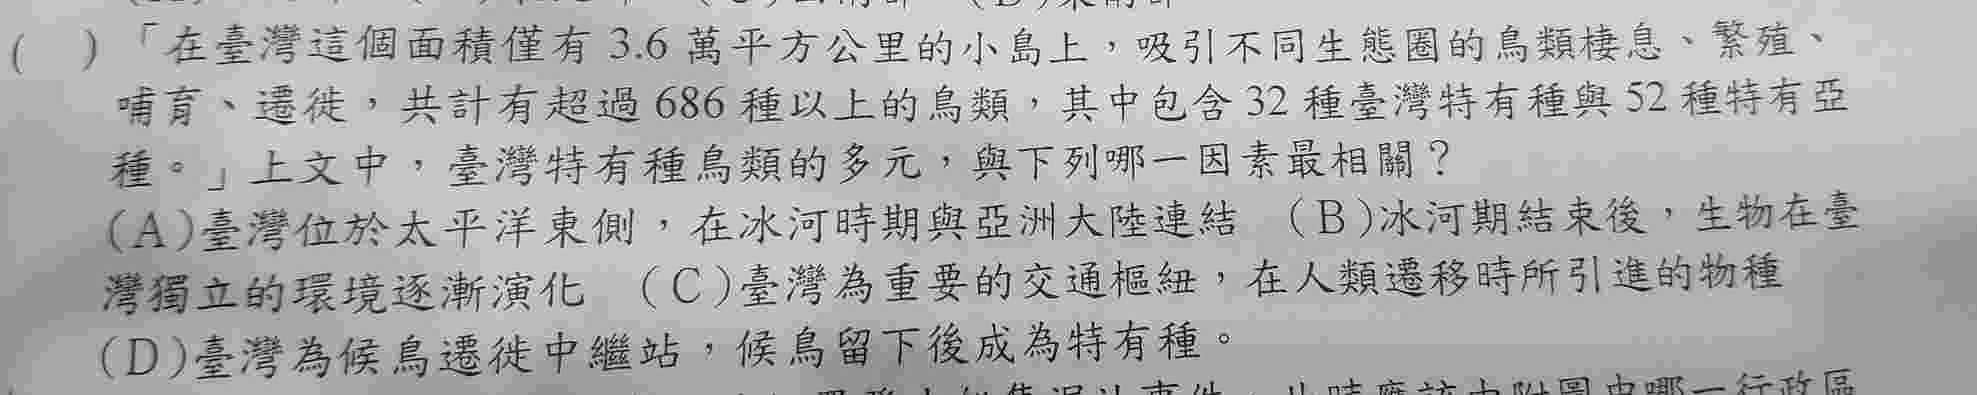 (　)「在臺灣這個面積僅有 3.6 萬平方公里的小島上，吸引不同生態圈的鳥類棲息、繁殖、
哺育、遷徙，共計有超過 686 種以上的鳥類，其中包含 32 種臺灣特有種與 52 種特有亞
種。」上文中，臺灣特有種鳥類的多元，與下列哪一因素最相關？
(A)臺灣位於太平洋東側，在冰河時期與亞洲大陸連結　(B)冰河期結束後，生物在臺
灣獨立的環境逐漸演化　(C)臺灣為重要的交通樞紐，在人類遷移時所引進的物種
(D)臺灣為候鳥遷徙中繼站，候鳥留下後成為特有種。